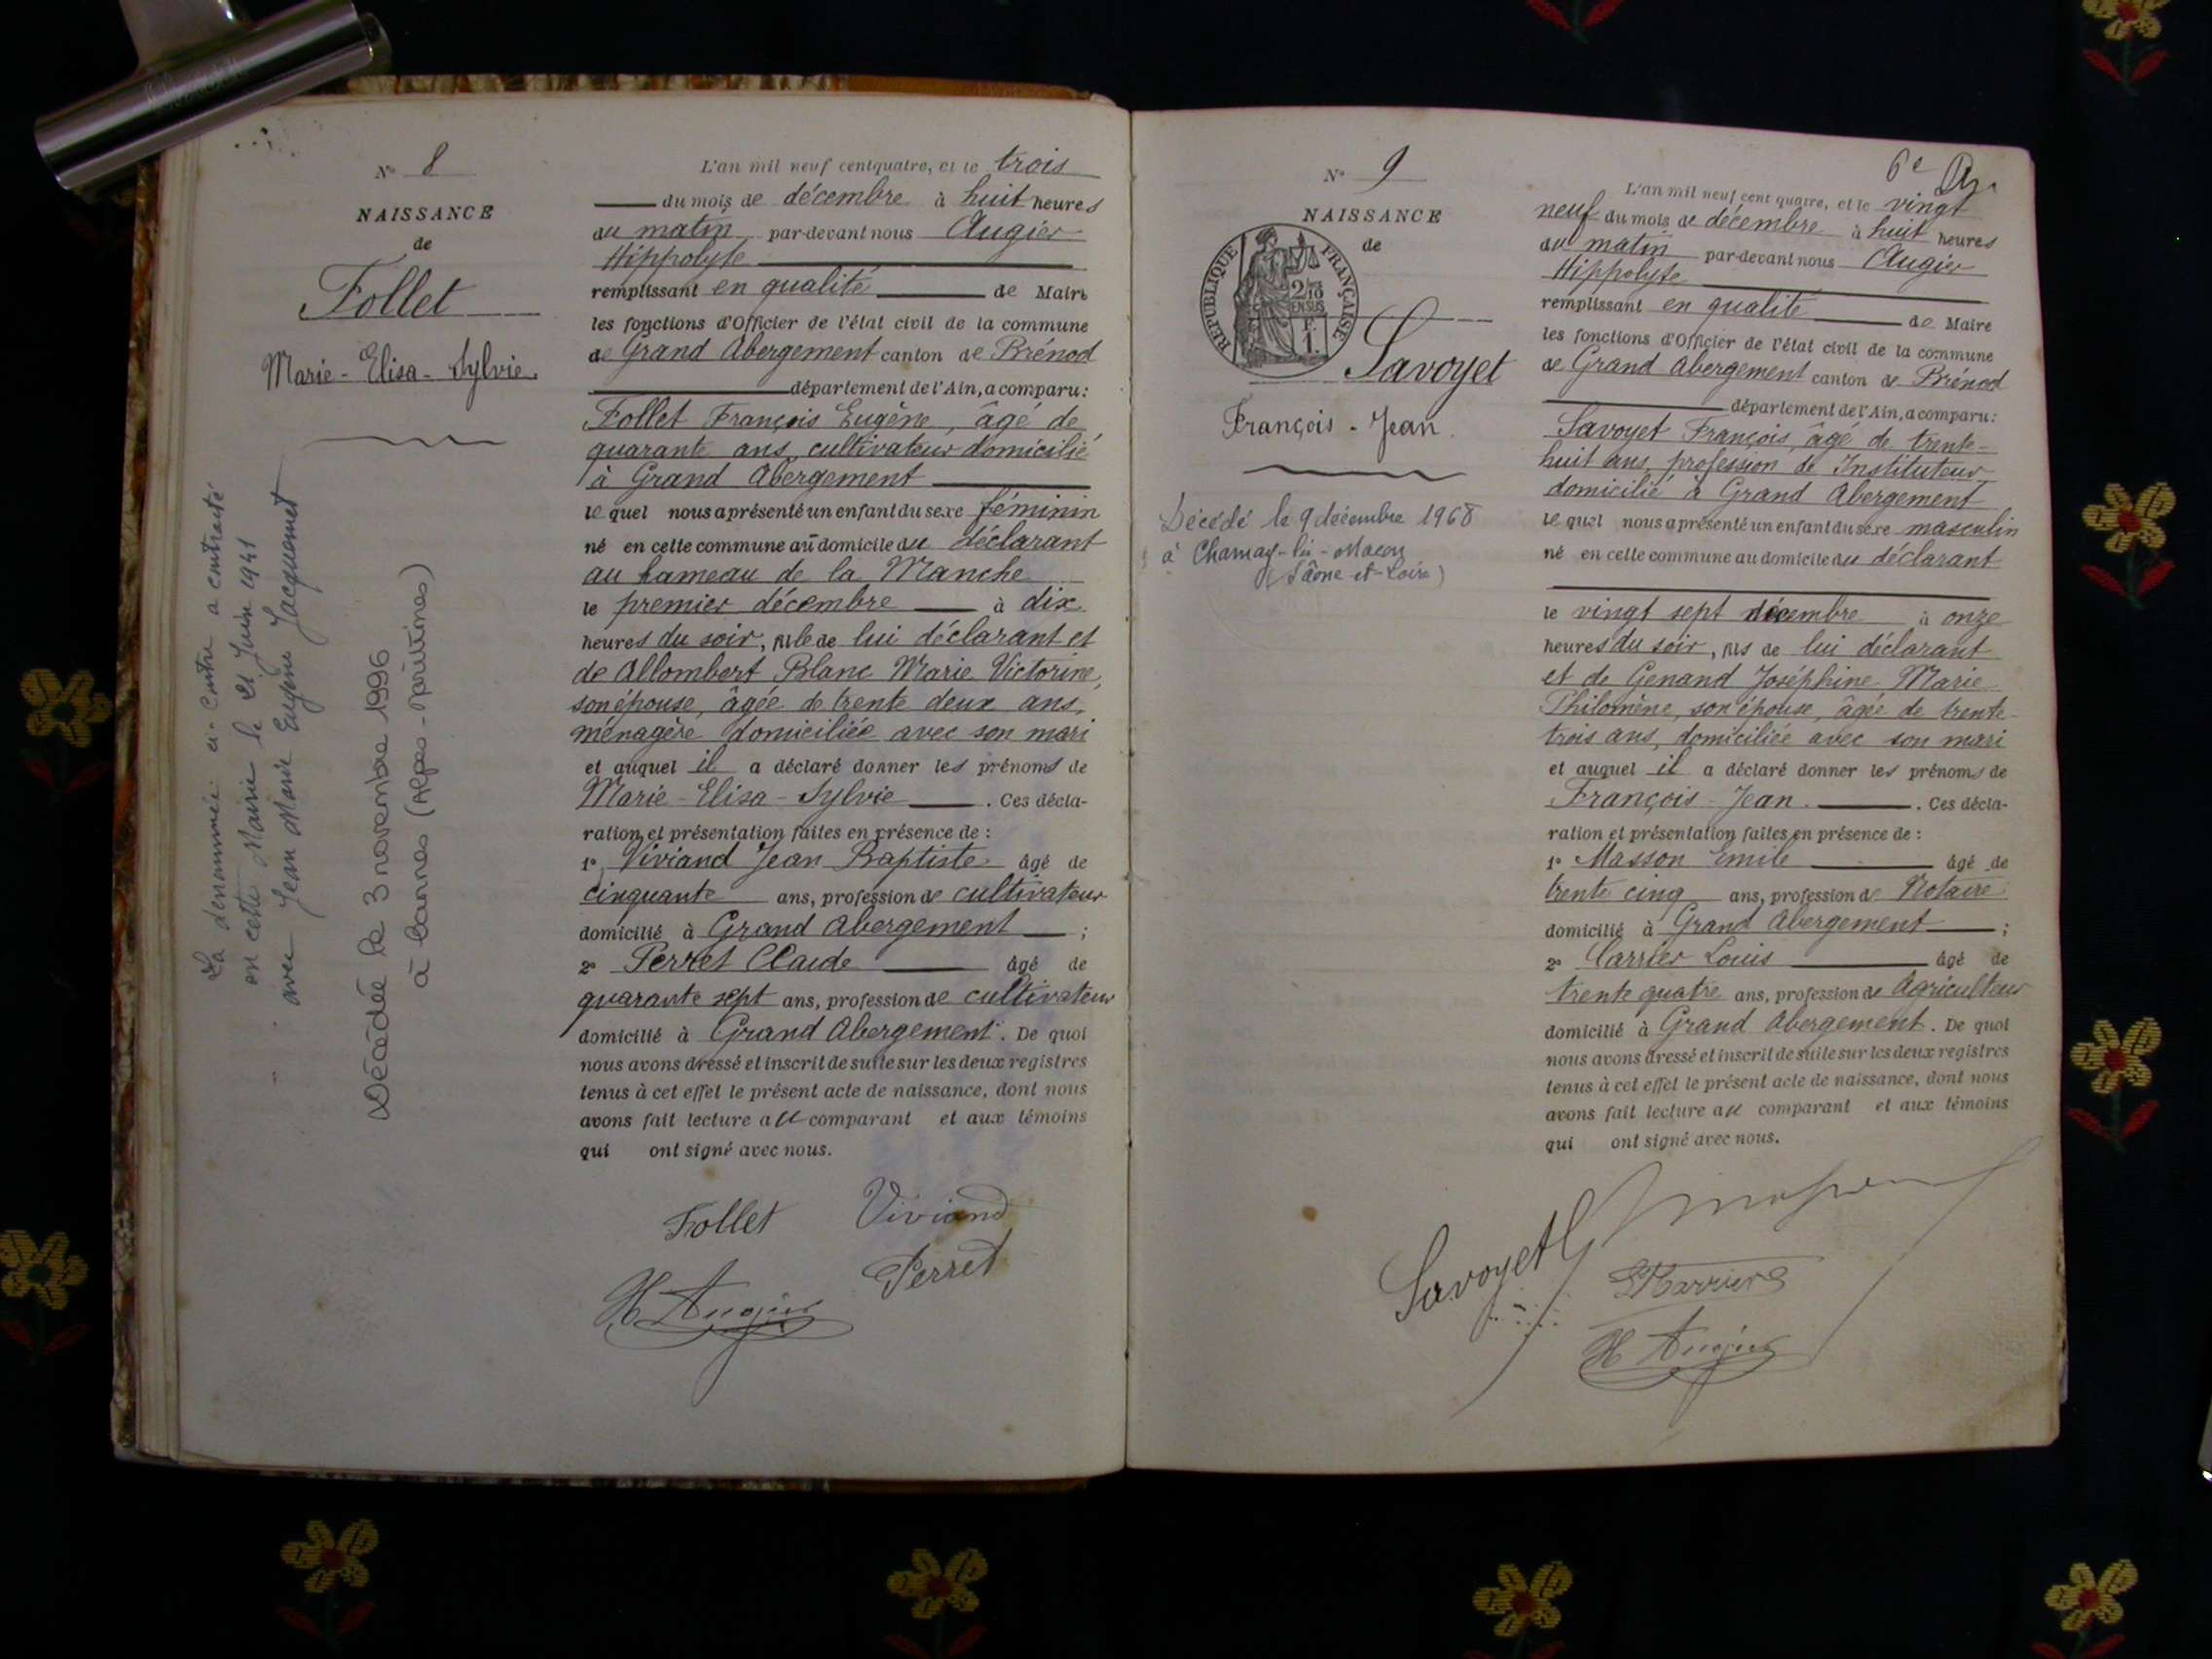 N° 8
NAISSANCE
de
Follet
Marie-Elisa-Sylvie.
La dénommée ci-contre a contracté
en cette Mairie le 21 Juin 1941
avec Jean Marie Eugène Jacquemet
Décédée le 3 novembre 1996
à Cannes (Alpes-Maritimes)
L'an mil neuf cent quatre, et le trois
du mois de décembre à huit heures
du matin par-devant nous Augier
Hippolyte
remplissant en qualité de Maire
les fonctions d'Officier de l'état civil de la commune
de Grand Abergement canton de Brénod
département de l'Ain, a comparu:
Follet François Eugène, âgé de
quarante ans, cultivateur domicilié
à Grand Abergement
le quel nous a présenté un enfant du sexe féminin
né en cette commune au domicile du déclarant
au hameau de la Manche
le premier décembre à dix
heures du soir, fille de lui déclarant et
de Allombert Blanc Marie Victorine,
son épouse, âgée de trente deux ans,
ménagère domiciliée avec son mari
et auquel il a déclaré donner les prénoms de
Marie-Elisa-Sylvie. Ces décla-
ration et présentation faites en présence de :
1° Viviand Jean Baptiste âgé de
cinquante ans, profession de cultivateur
domicilié à Grand Abergement ;
2° Perret Claude âgé de
quarante sept ans, profession de cultivateur
domicilié à Grand Abergement. De quoi
nous avons dressé et inscrit de suite sur les deux registres
tenus à cet effet le présent acte de naissance, dont nous
avons fait lecture au comparant et aux témoins
qui ont signé avec nous.
Follet Viviand
Perret
H Augier
N° 9
NAISSANCE
de
REPUBLIQUE FRANÇAISE
2/10
EN SUS
F.
1.
Savoyet
François-Jean.
Décédé le 9 décembre 1968
à Charnay-lès-Macon
(Saône-et-Loire)
6e
L'an mil neuf cent quatre, et le vingt
neuf du mois de décembre à huit heures
du matin par-devant nous Augier
Hippolyte
remplissant en qualité de Maire
les fonctions d'Officier de l'état civil de la commune
de Grand Abergement canton de Brénod
département de l'Ain, a comparu:
Savoyet François, âgé de trente-
huit ans, profession de Instituteur
domicilié à Grand Abergement
le quel nous a présenté un enfant du sexe masculin
né en cette commune au domicile du déclarant
le vingt sept décembre à onze
heures du soir, fils de lui déclarant
et de Genand Joséphine Marie
Philomène, son épouse, âgée de trente-
trois ans, domiciliée avec son mari
et auquel il a déclaré donner les prénoms de
François-Jean. Ces décla-
ration et présentation faites en présence de :
1° Masson Emile âgé de
trente cinq ans, profession de Notaire
domicilié à Grand Abergement ;
2° Carrier Louis âgé de
trente quatre ans, profession de Agriculteur
domicilié à Grand Abergement. De quoi
nous avons dressé et inscrit de suite sur les deux registres
tenus à cet effet le présent acte de naissance, dont nous
avons fait lecture au comparant et aux témoins
qui ont signé avec nous.
Savoyet
H Augier